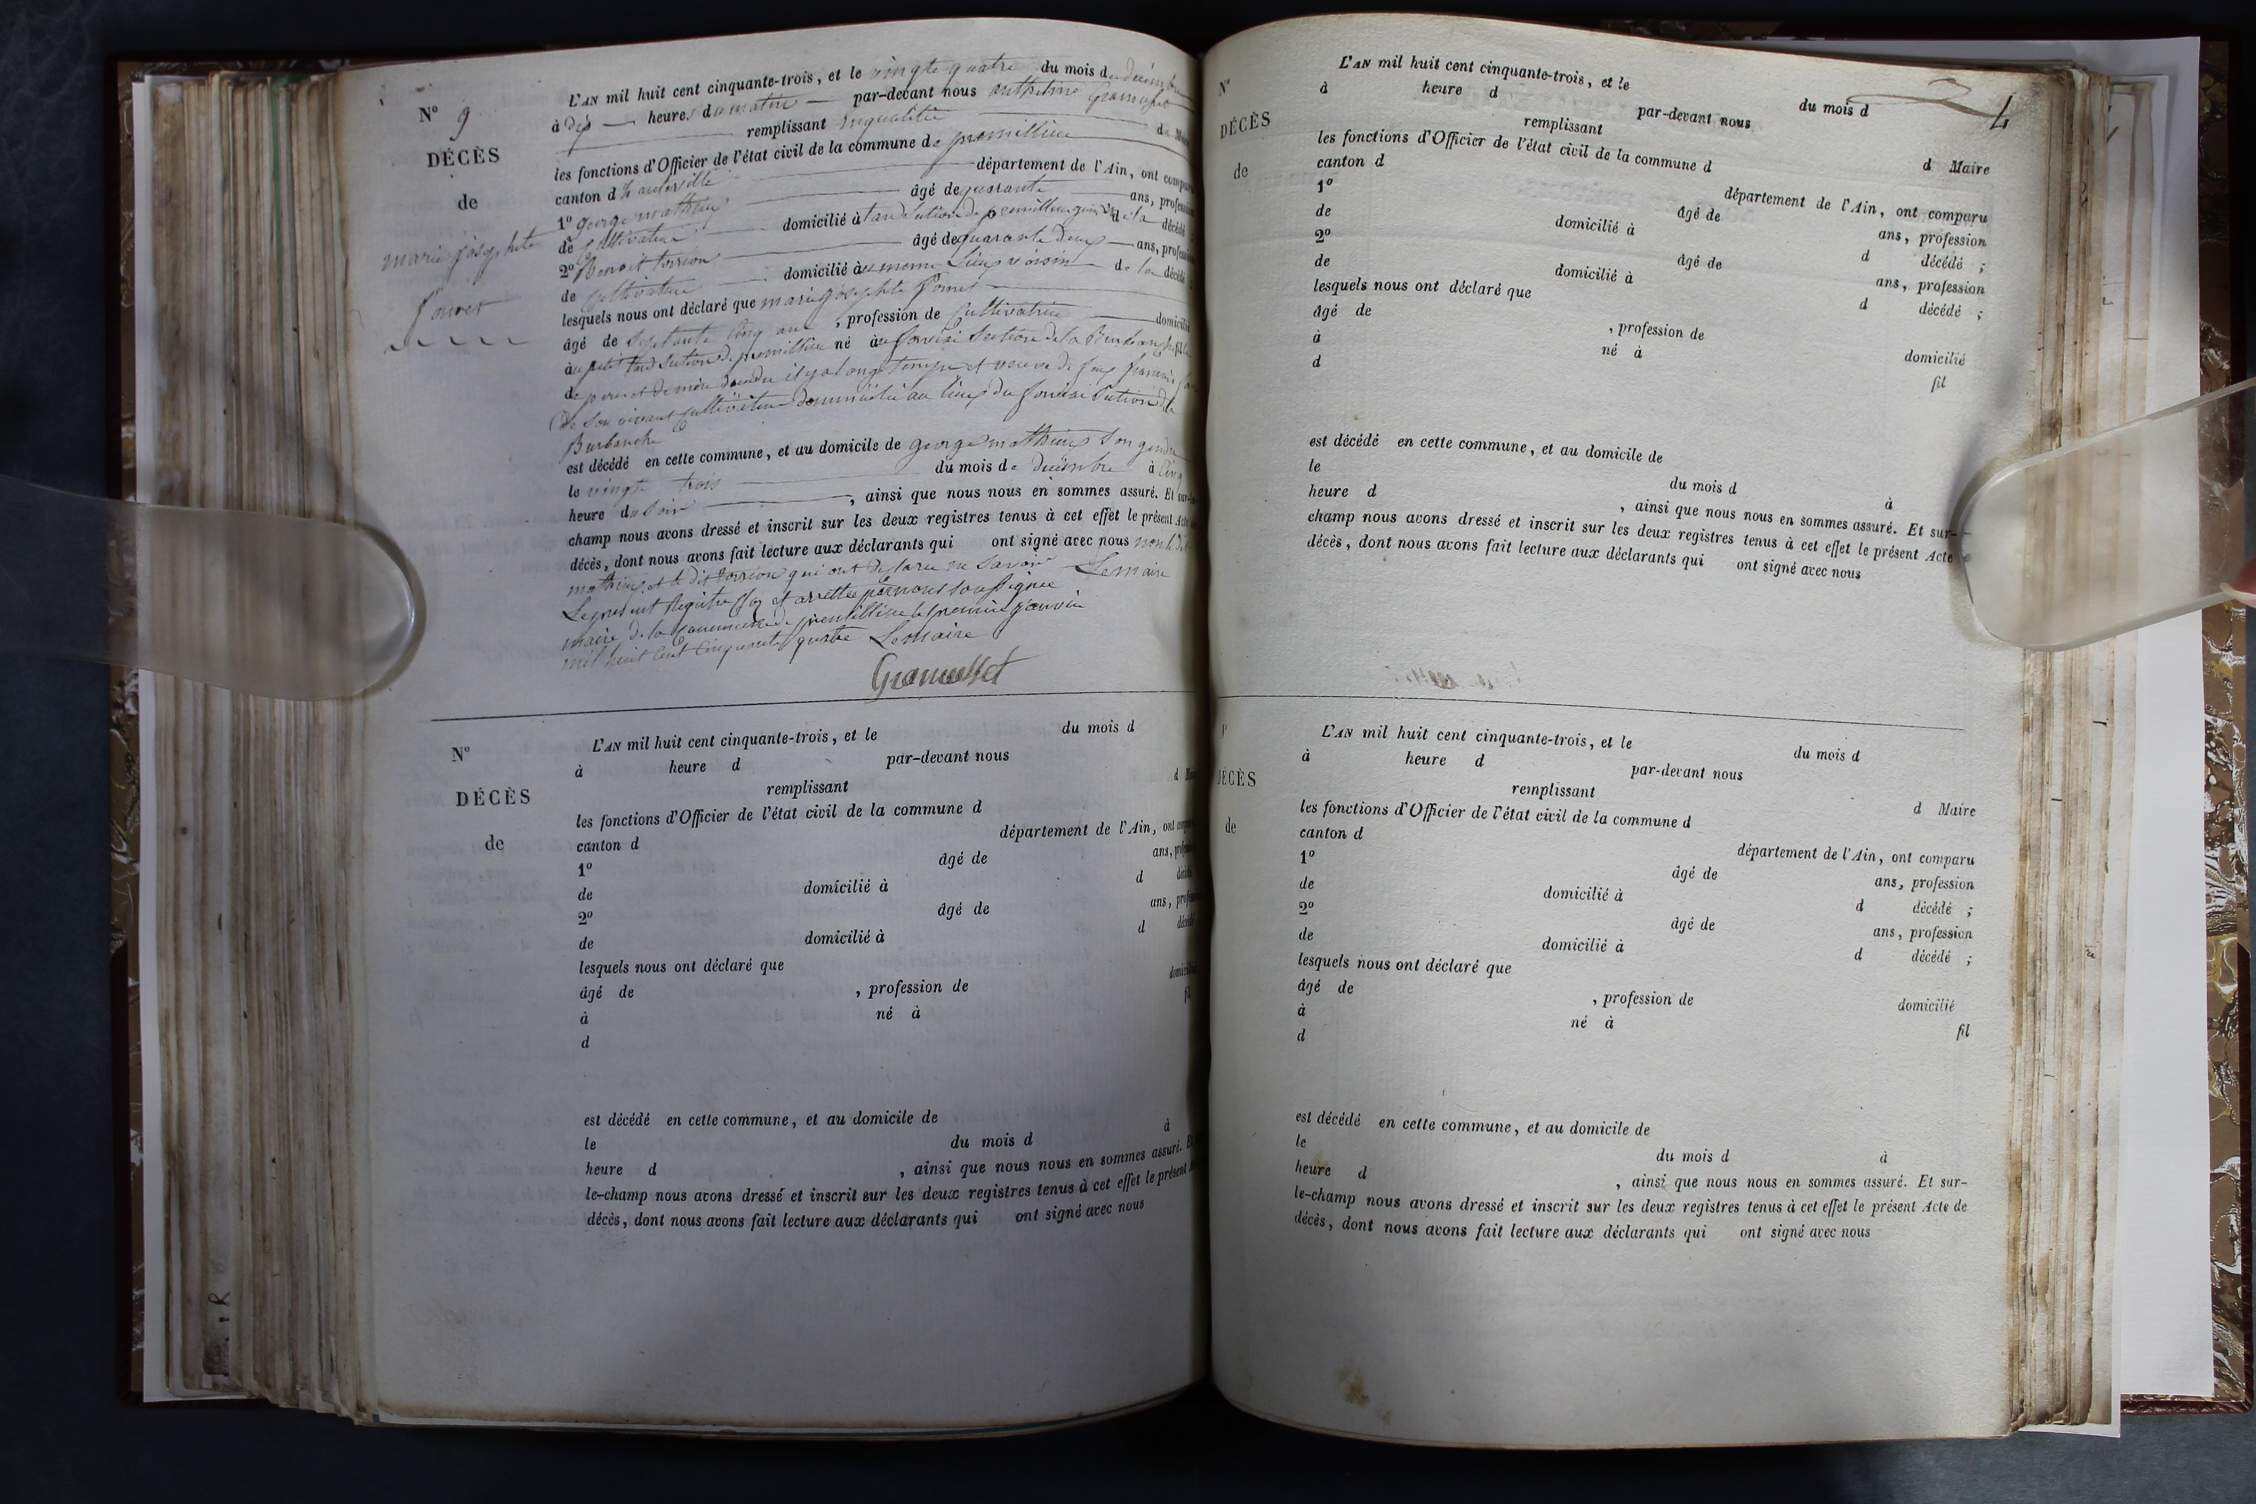 N° 9
DÉCÈS
de
marie josephte
L'AN mil huit cent cinquante-trois, et le vingte quatre du mois de
à dix heures du matin par-devant nous
remplissant
les fonctions d'Officier de l'état civil de la commune de premillieu
canton d département de l'Ain, ont
1° george mathieu âgé de quarante ans,
de cultivateur domicilié à de premillieu
2° Benoit âgé de quarante deux ans,
de cultivateur domicilié au meme lieu voisin de la
lesquels nous ont déclaré que marie josephte
âgé de Septante Cinq ans, profession de Cultivatrice
au petit de premillieu né au Section de la
de pere et de mère il y a long temps et veuve de
de Son vivant cultivateur au lieu du Section de la
Burbanche
est décédé en cette commune, et au domicile de george mathieu Son gendre
le vingte trois du mois de décembre à Cinq
heure du Soir, ainsi que nous nous en sommes assuré. Et
champ nous avons dressé et inscrit sur les deux registres tenus à cet effet le présent
décès, dont nous avons fait lecture aux déclarants qui ont signé avec nous non
mathieu et le dit qui ont Le maire
Le present par nous
maire de la commune de le premier janvier
mil huit Cent Cinquante quatre Le Maire
N°
DÉCÈS
de
L'AN mil huit cent cinquante-trois, et le du mois d
à heure d par-devant nous
remplissant d
les fonctions d'Officier de l'état civil de la commune d
canton d département de l'Ain, ont
1° âgé de ans,
de domicilié à d
2° âgé de ans,
de domicilié à d
lesquels nous ont déclaré que
âgé de , profession de
à né à
d
est décédé en cette commune, et au domicile de
le du mois d à
heure d , ainsi que nous nous en sommes assuré.
le-champ nous avons dressé et inscrit sur les deux registres tenus à cet effet le présent
décès, dont nous avons fait lecture aux déclarants qui ont signé avec nous
4
N°
DÉCÈS
de
L'AN mil huit cent cinquante-trois, et le du mois d
à heure d par-devant nous
remplissant d Maire
les fonctions d'Officier de l'état civil de la commune d
canton d département de l'Ain, ont comparu
1° âgé de ans, profession
de domicilié à d décédé ;
2° âgé de ans, profession
de domicilié à d décédé ;
lesquels nous ont déclaré que
âgé de , profession de domicilié
à né à fil
d
est décédé en cette commune, et au domicile de
le du mois d à
heure d , ainsi que nous nous en sommes assuré. Et sur-
champ nous avons dressé et inscrit sur les deux registres tenus à cet effet le présent Acte
décès, dont nous avons fait lecture aux déclarants qui ont signé avec nous
DÉCÈS
de
L'AN mil huit cent cinquante-trois, et le du mois d
à heure d par-devant nous
remplissant d Maire
les fonctions d'Officier de l'état civil de la commune d
canton d département de l'Ain, ont comparu
1° âgé de ans, profession
de domicilié à d décédé ;
2° âgé de ans, profession
de domicilié à d décédé ;
lesquels nous ont déclaré que
âgé de , profession de domicilié
à né à fil
d
est décédé en cette commune, et au domicile de
le du mois d à
heure d , ainsi que nous nous en sommes assuré. Et sur-
le-champ nous avons dressé et inscrit sur les deux registres tenus à cet effet le présent Acte de
décès, dont nous avons fait lecture aux déclarants qui ont signé avec nous